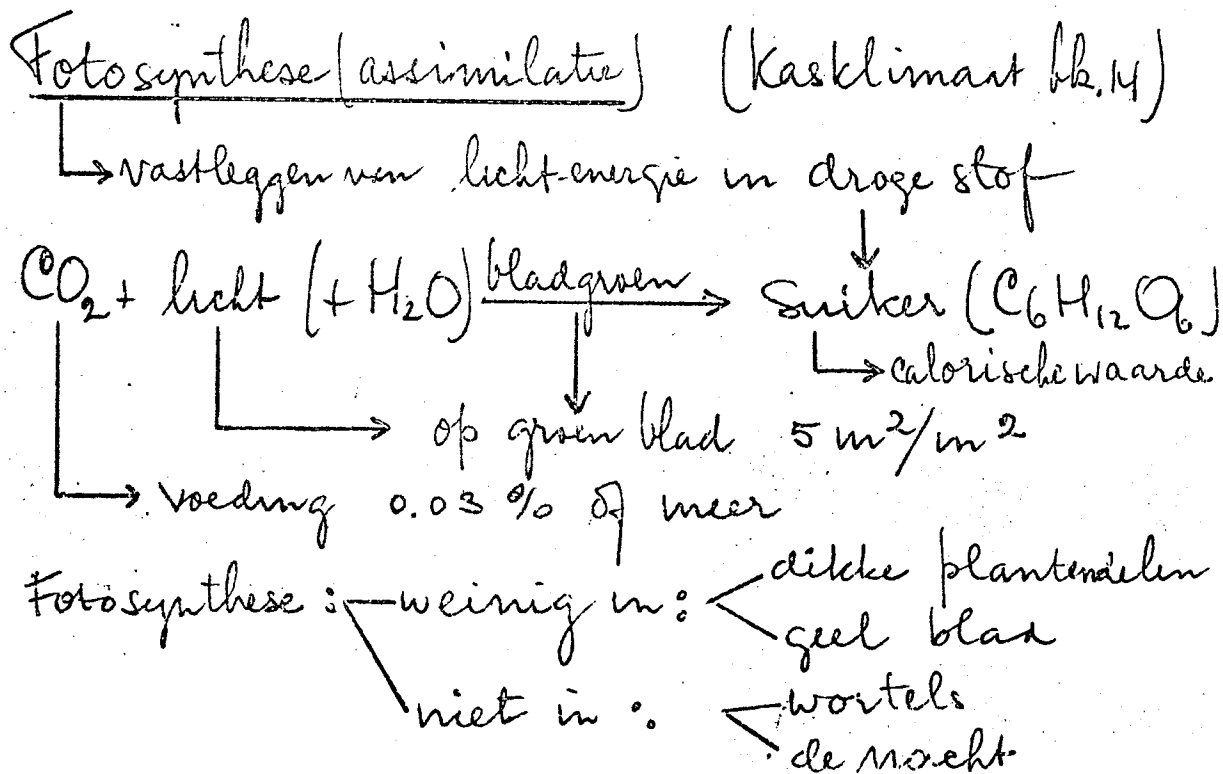 Fotosynthese (assimilatie) (Kasklimaat blz. 14)
vastleggen van licht-energie in droge stof
CO₂ + licht (+ H₂O) bladgroen → Suiker (C₆H₁₂O₆)
calorische waarde
op groen blad 5 m²/m²
voeding 0.03 % of meer
Fotosynthese : weinig in : dikke plantendelen
geel blad
niet in : wortels
de nacht